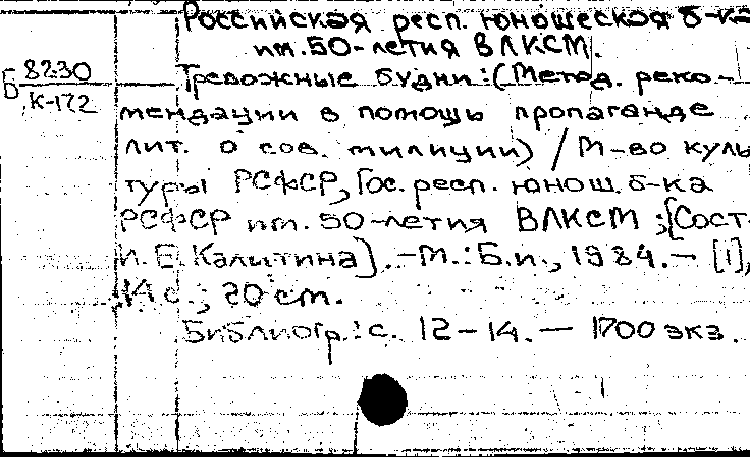 Российская респ. юношеская б-ка
им. 50-летия ВЛКСМ.
Б 8230
К-172
Тревожные будни: (Метод. реко-
мендации в помощь пропаганде
лит. о сов. милиции) / М-во куль
туры РСФСР, Гос. респ. юнош. б-ка
РСФСР им. 50-летия ВЛКСМ; [Сост.
И. Е. Калитина]. - М.: Б.и., 1984. - [1],
14 с.; 20 см.
Библиогр.: с. 12-14. - 1700 экз.